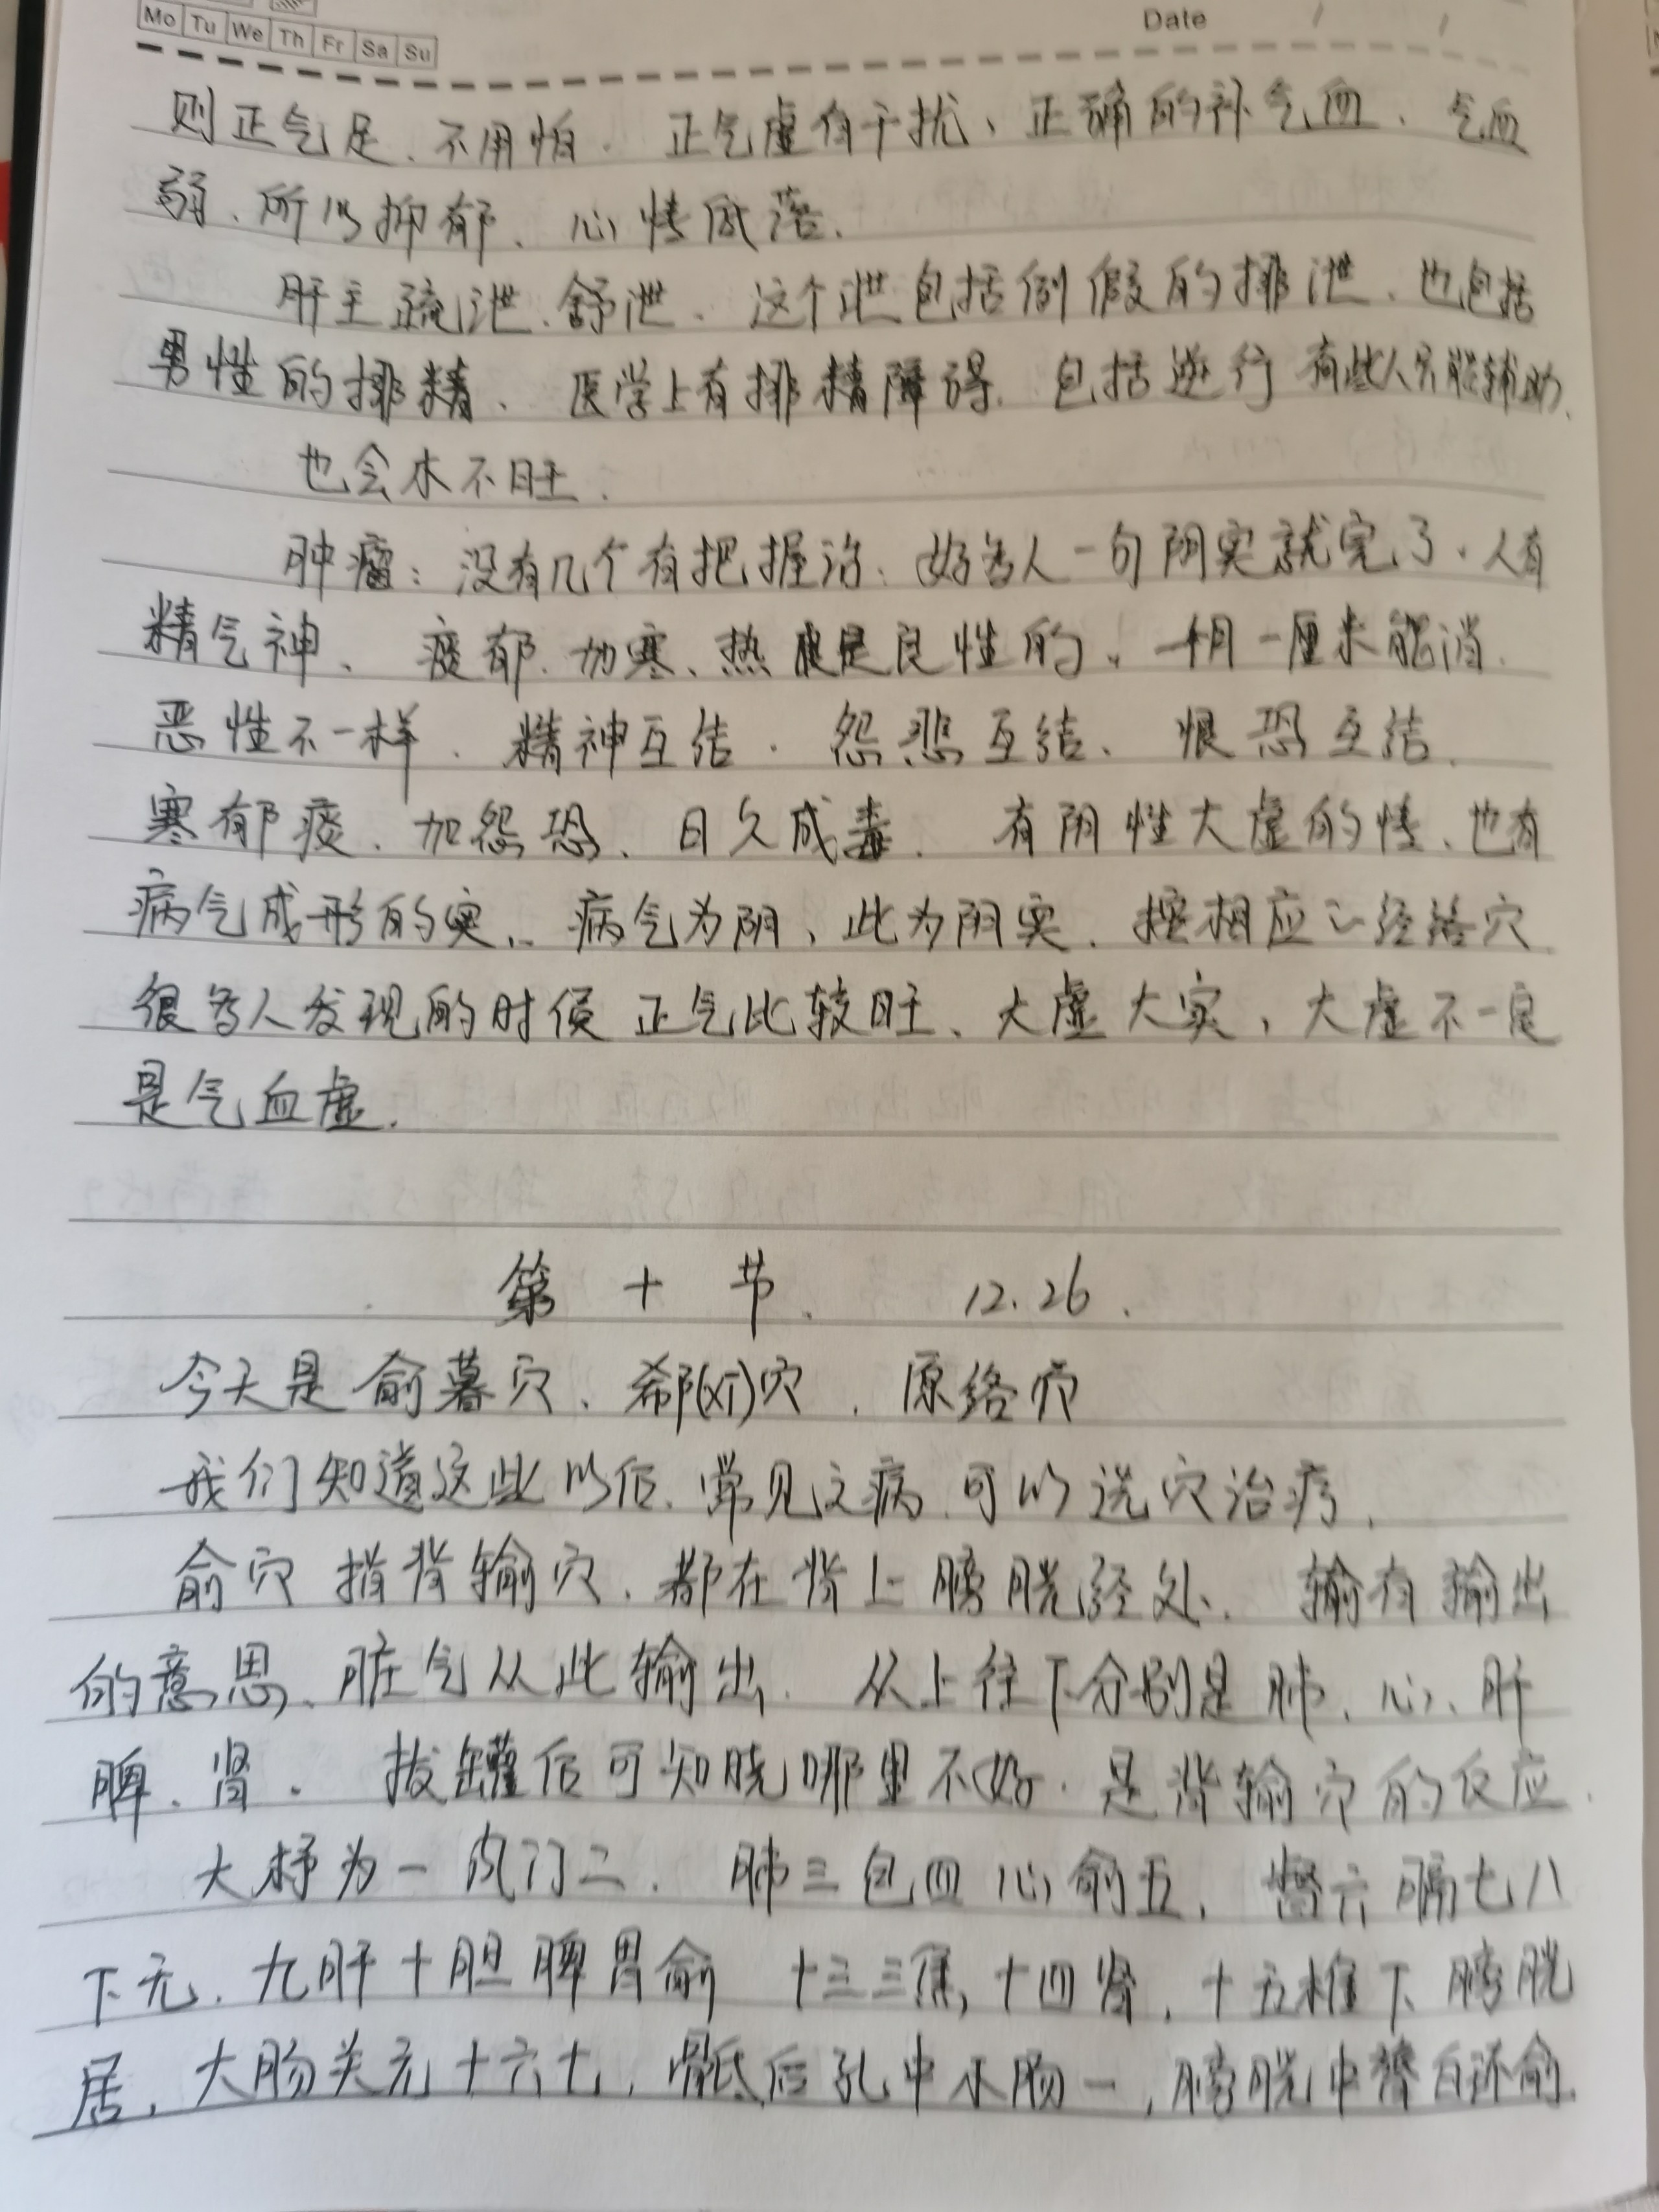 Mo Tu We Th Fr Sa Su
Date / /
则正气足、不用怕. 正气虚有干扰、正确的补气血、气血
弱、所以抑郁、心情低落.
肝主疏泄、舒泄、这个泄包括例假的排泄、也包括
男性的排精、医学上有排精障碍. 包括逆行 有些人只能辅助.
也会木不旺.
肿瘤：没有几个有把握治：好多人一句阴实就完了、人有
精气神、痰郁、加寒、热 是良性的、一个月一厘米能消.
恶性不一样. 精神互结. 怨悲互结、恨恐互结.
寒郁痰、加怨恐、日久成毒. 有阴性大虚的情、也有
病气成形的实、病气为阴、此为阴实. 按相应的经络穴
很多人发现的时候 正气比较旺、大虚大实, 大虚不一定
是气血虚.
第十节. 12.26.
今天是俞募穴、郗(xī)穴、原络穴
我们知道这些以后、常见之病、可以选穴治疗.
俞穴 指背输穴、都在背上膀胱经处. 输有输出
的意思、脏气从此输出. 从上往下分别是肺、心、肝
脾、肾. 拔罐后可知晓哪里不好. 是背输穴的反应.
大杼为一风门二. 肺三包四心俞五, 督六膈七八
下无. 九肝十胆脾胃俞 十三三焦, 十四肾, 十五椎下膀胱
居, 大肠关元十六七, 骶后孔中小肠一, 膀胱中膂白环俞.